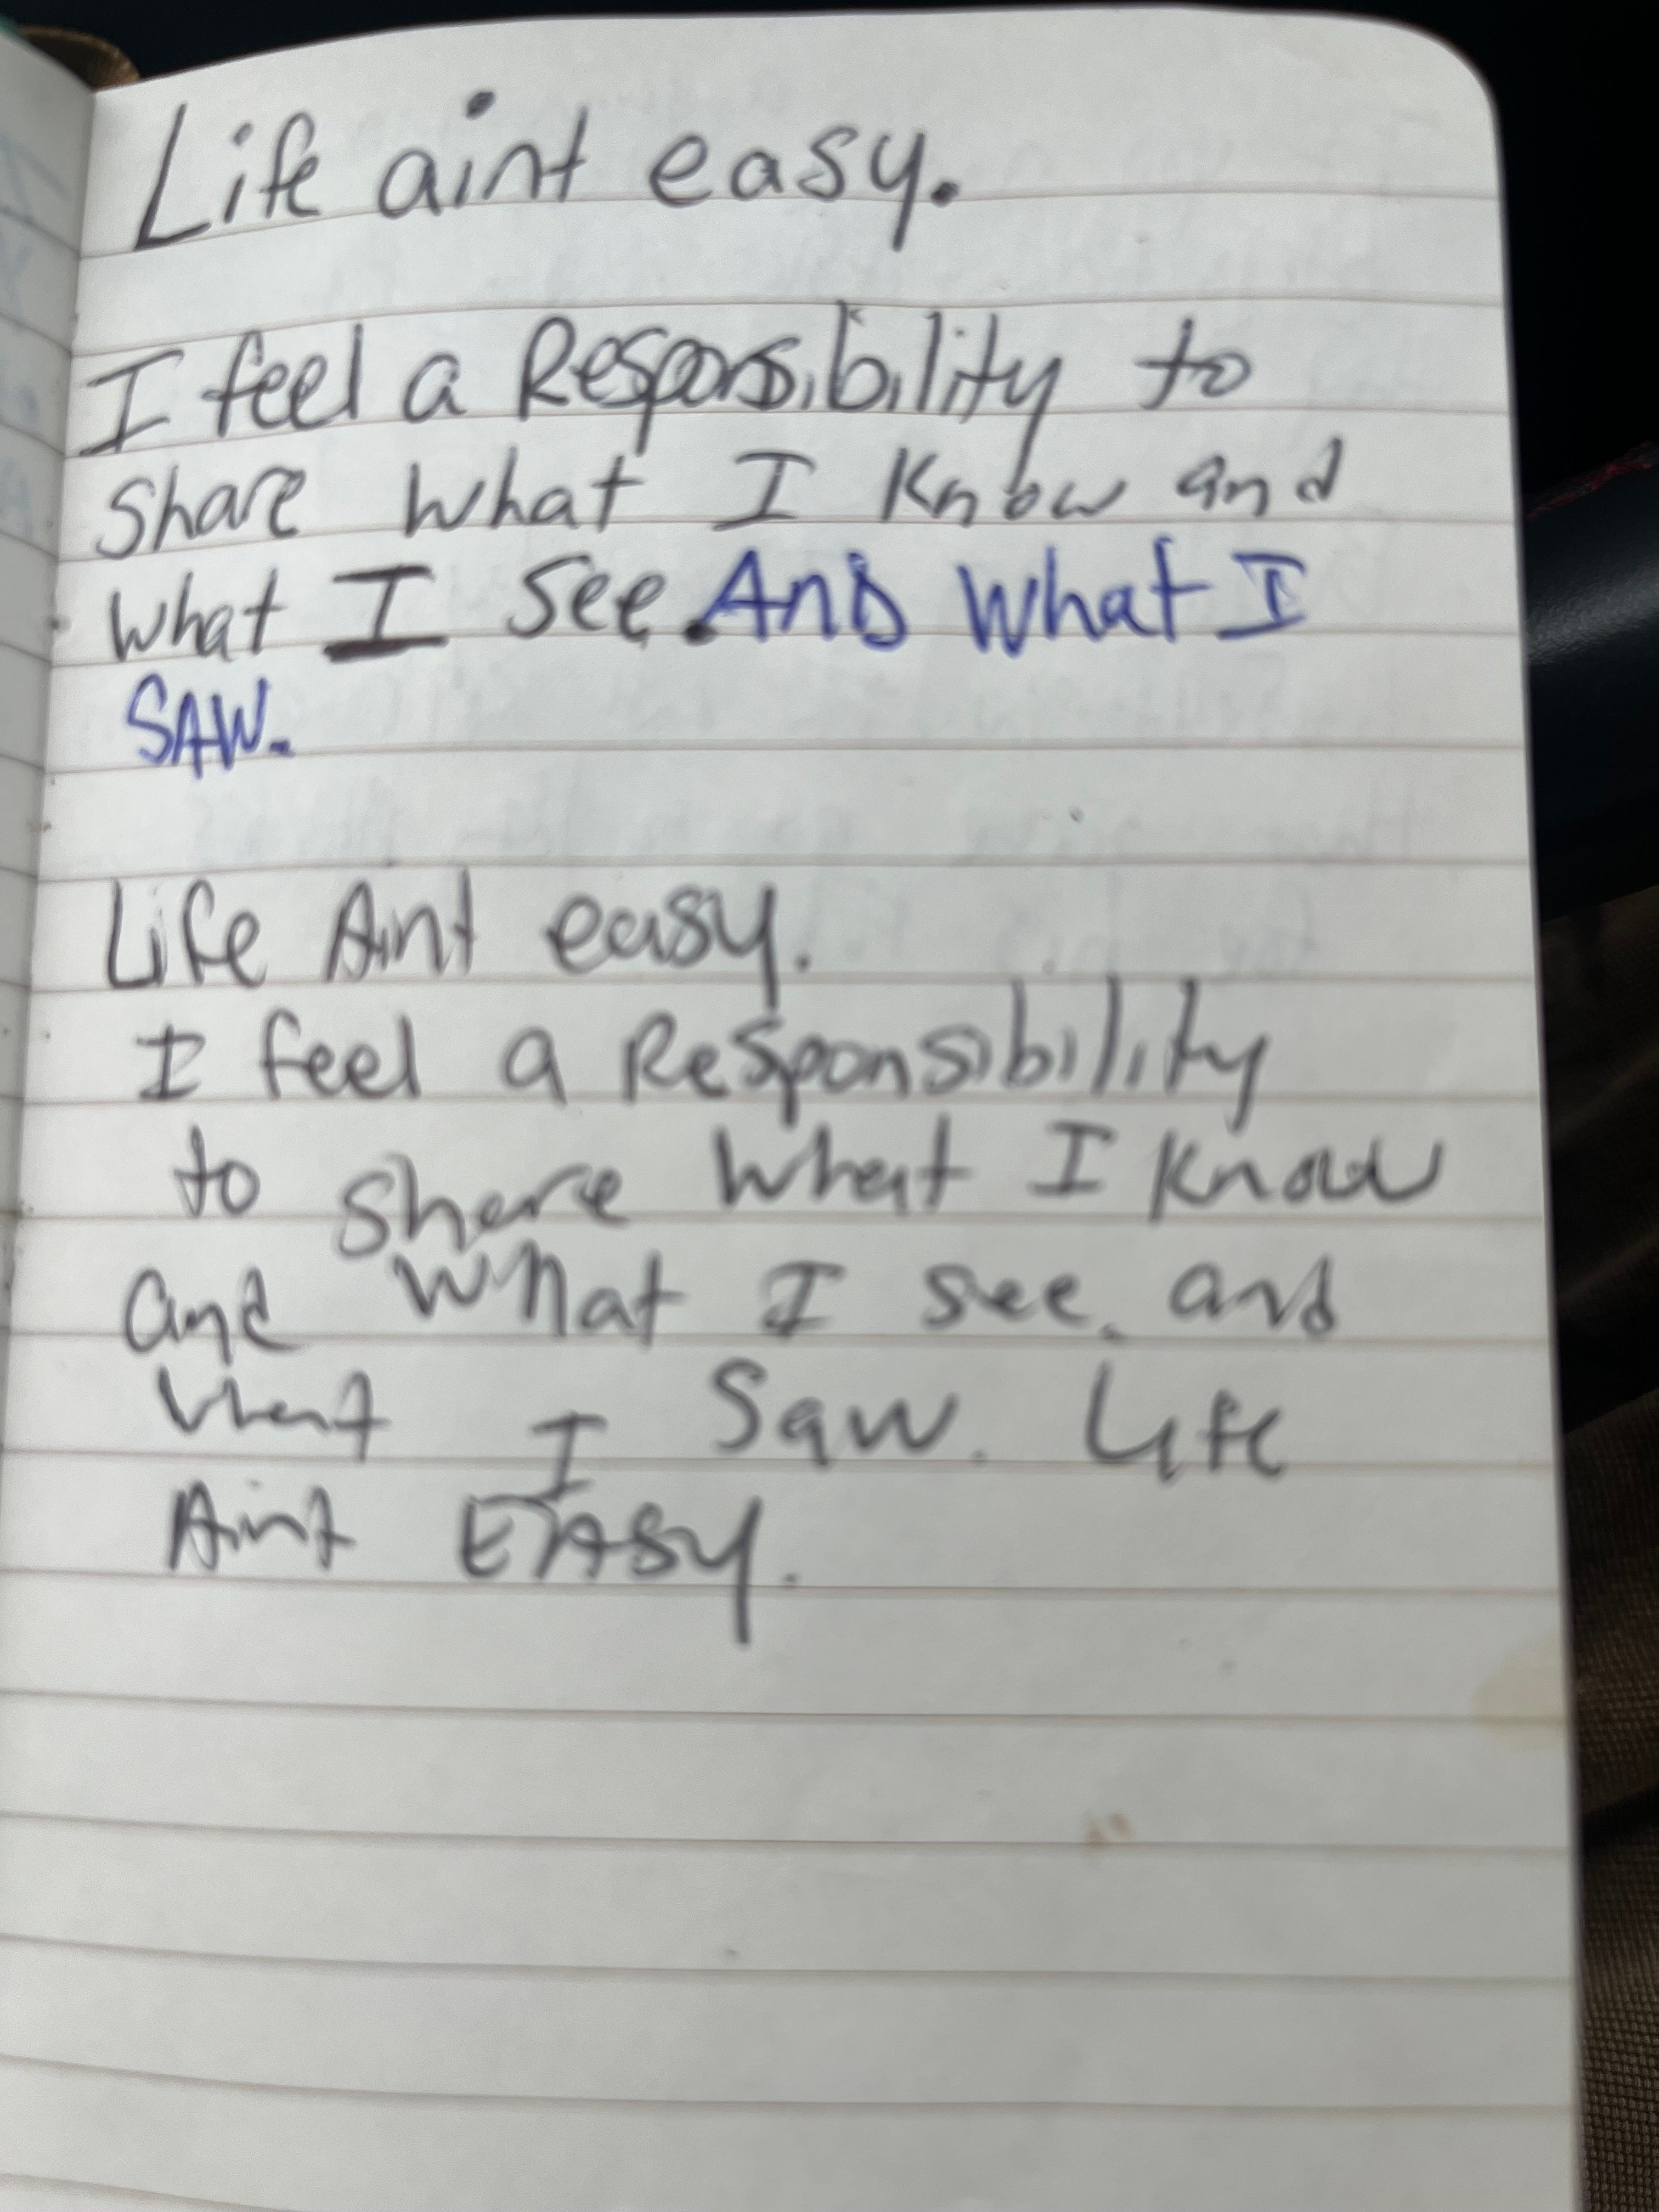 Life aint easy.
I feel a Responsibility to
share what I Know and
what I see. And What I
SAW.
Life Aint easy.
I feel a Responsibility
to share what I Know
and What I see. and
what I Saw. Life
Aint EASy.